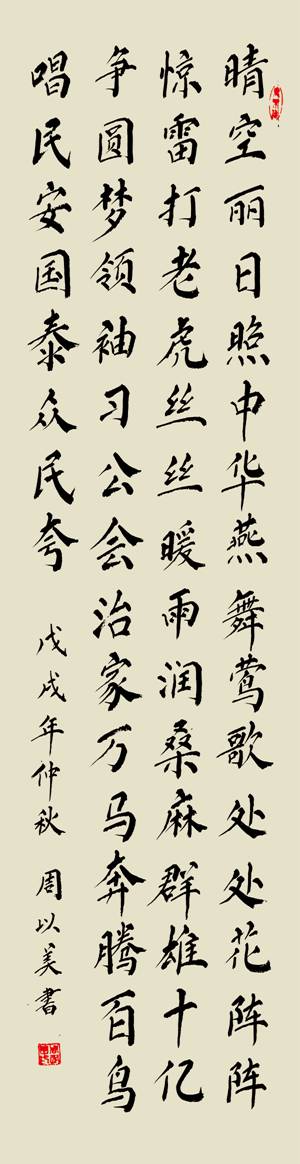 晴空丽日照中华燕舞莺歌处处花阵阵
惊雷打老虎丝丝暖雨润桑麻群雄十亿
争圆梦领袖习公会治家万马奔腾百鸟
唱民安国泰众民夸
戊戌年仲秋 周以美书